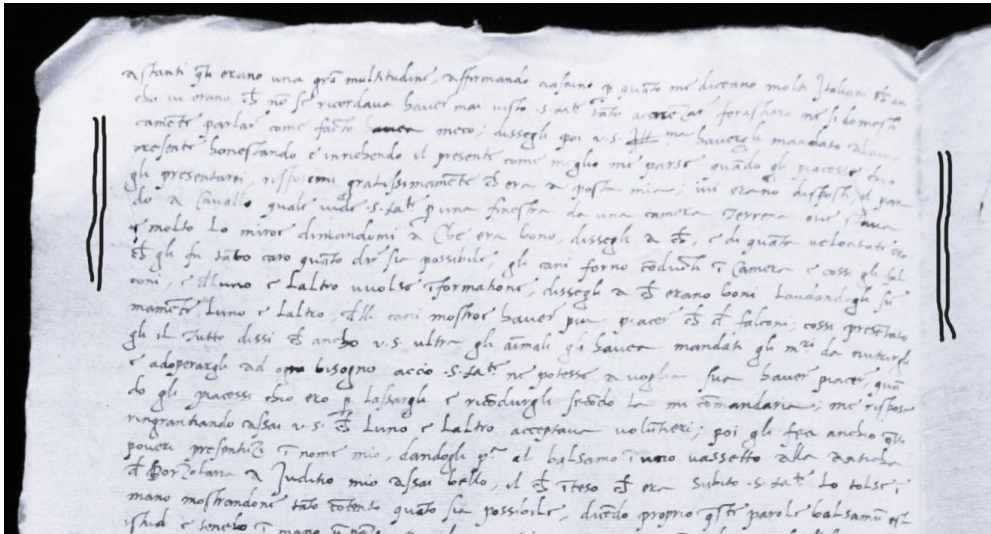 astanti gli erano una grã multitudine, affirmando ciascuno p quãto me diceano molti Italiani ch̃ an
cho vi erano ch̃ nõ se ricordava haver mai visto .S. Lat. tãto acarezar forastiero ne sì domesti
camẽte parlar come facto havea meco; dissegli poi v.s. Ill ma havergli mandato
presente honestando e inrichendo il presente come meglio me parse quãdo gli piacesse chio
gli presentarei, risposemi gratissimamẽte ch̃ era a posta mia; ivi erano disposti
do a Cavallo quale vide .S. Lat. p una finestra da una camera Terrena ove stava
e molto Lo miroe dimandomi a Che era bono, dissegli a ch̃, e di quãta velocitate era
ch̃ gli fu tãto caro quãto dir sia possibile, gli cani forno cõducti ĩ Camera e cossi gli fal
coni, e dlluno e Laltro vuolse ĩformatione, dissegli a ch̃ erano boni Laudandogli sũ
mamẽte, Luno e Laltro, delli cani mostroe haver piu piacer ch̃ d falconi; cossi presẽtato
gli il Tutto dissi ch̃ ancho v.s. ultra gli aĩmali gli havea mandati gli mri da nutrirgli
e adoperargli ad ogni bisogno acciò .S. Lat. ne potesse a voglia sua haver piacer, quã
do gli piacessi chio ero p Lassargli e ricõdurgli secõdo La mi comandaria; me rispose
ringrantiando assai v.s. ch̃ Luno e Laltro acceptava volũtieri; poi gli fea anchio q̃lli
poveri presentizi ĩ nome mio, dandogli p.a al balsamo ĩ uno vassetto alla anticha
d Porzolana a Juditio mio assai bello, il ch̃ ĩteso ch̃ era subito .S. Lat. Lo tolse ĩ
mano mostrandone tãto cõtento quãto sia possibile, dicẽdo proprio q̃ste parole balsamũ est
istud e tenelo ĩ mano